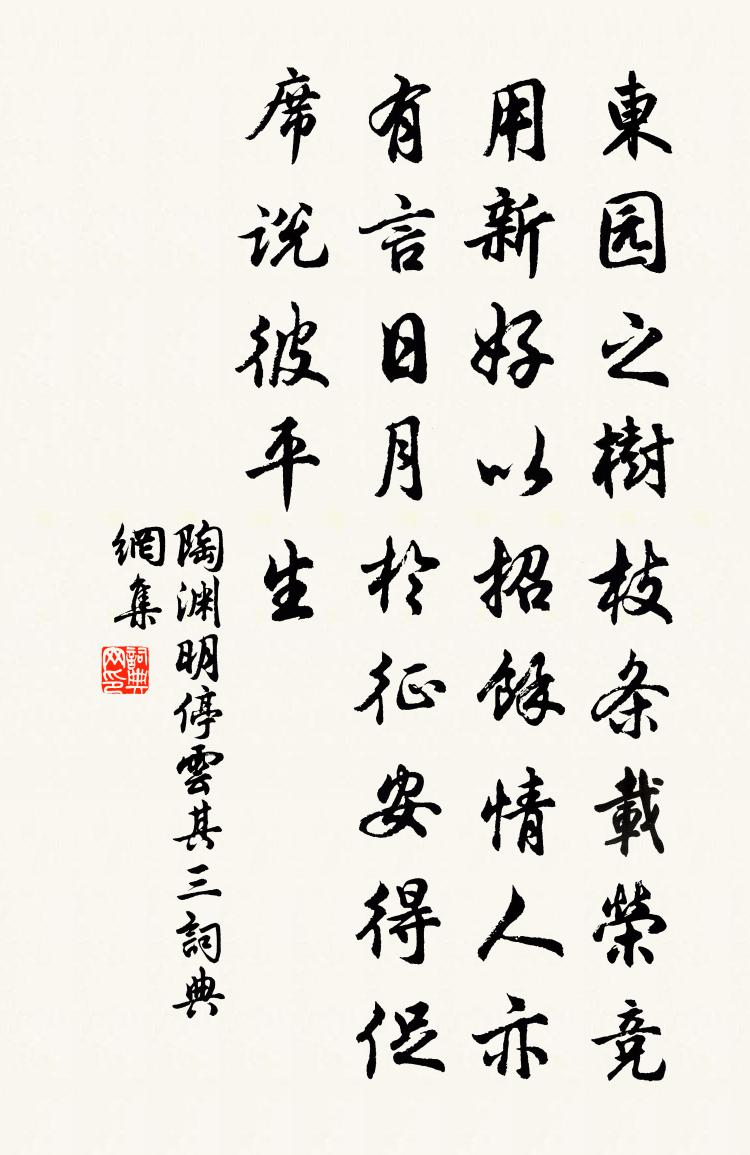 東园之樹枝条載榮竞
用新好以招餘情人亦
有言日月於征安得促
席说彼平生
陶渊明停雲其三詞典
網集
詞典
网印